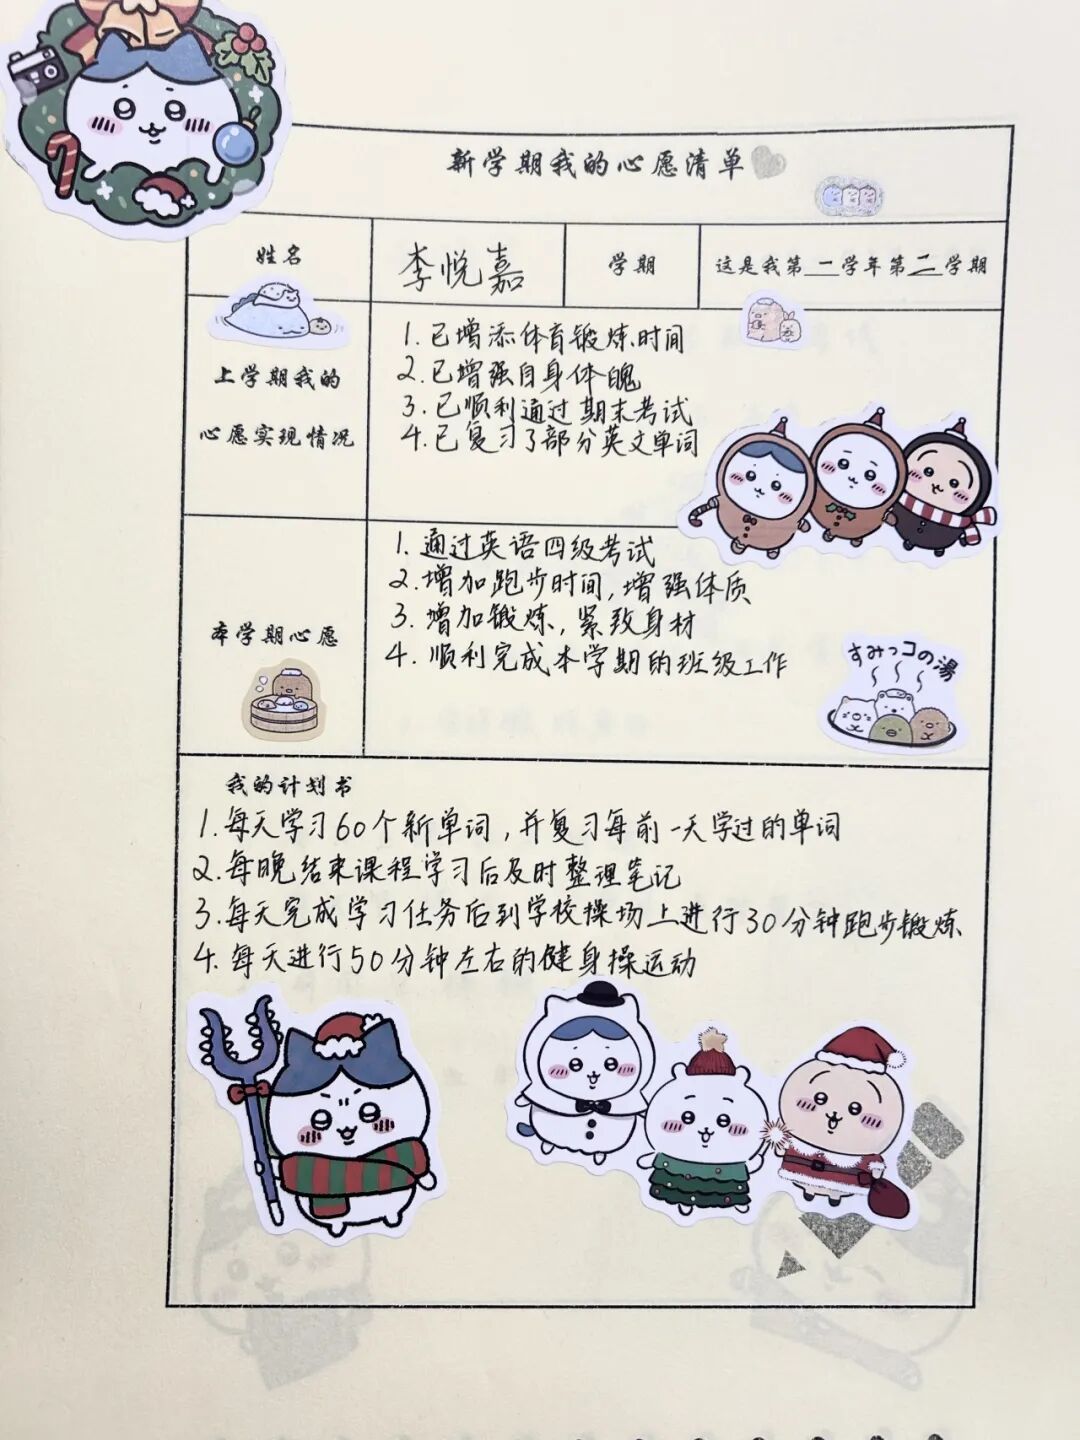 新学期我的心愿清单
姓名
李悦嘉
学期
这是我第一学年第二学期
上学期我的
心愿实现情况
1.已增添体育锻炼时间
2.已增强自身体魄
3.已顺利通过期末考试
4.已复习了部分英文单词
本学期心愿
1.通过英语四级考试
2.增加跑步时间,增强体质
3.增加锻炼,紧致身材
4.顺利完成本学期的班级工作
すみっコの湯
我的计划书
1.每天学习60个新单词,并复习每前一天学过的单词
2.每晚结束课程学习后及时整理笔记
3.每天完成学习任务后到学校操场上进行30分钟跑步锻炼
4.每天进行50分钟左右的健身操运动